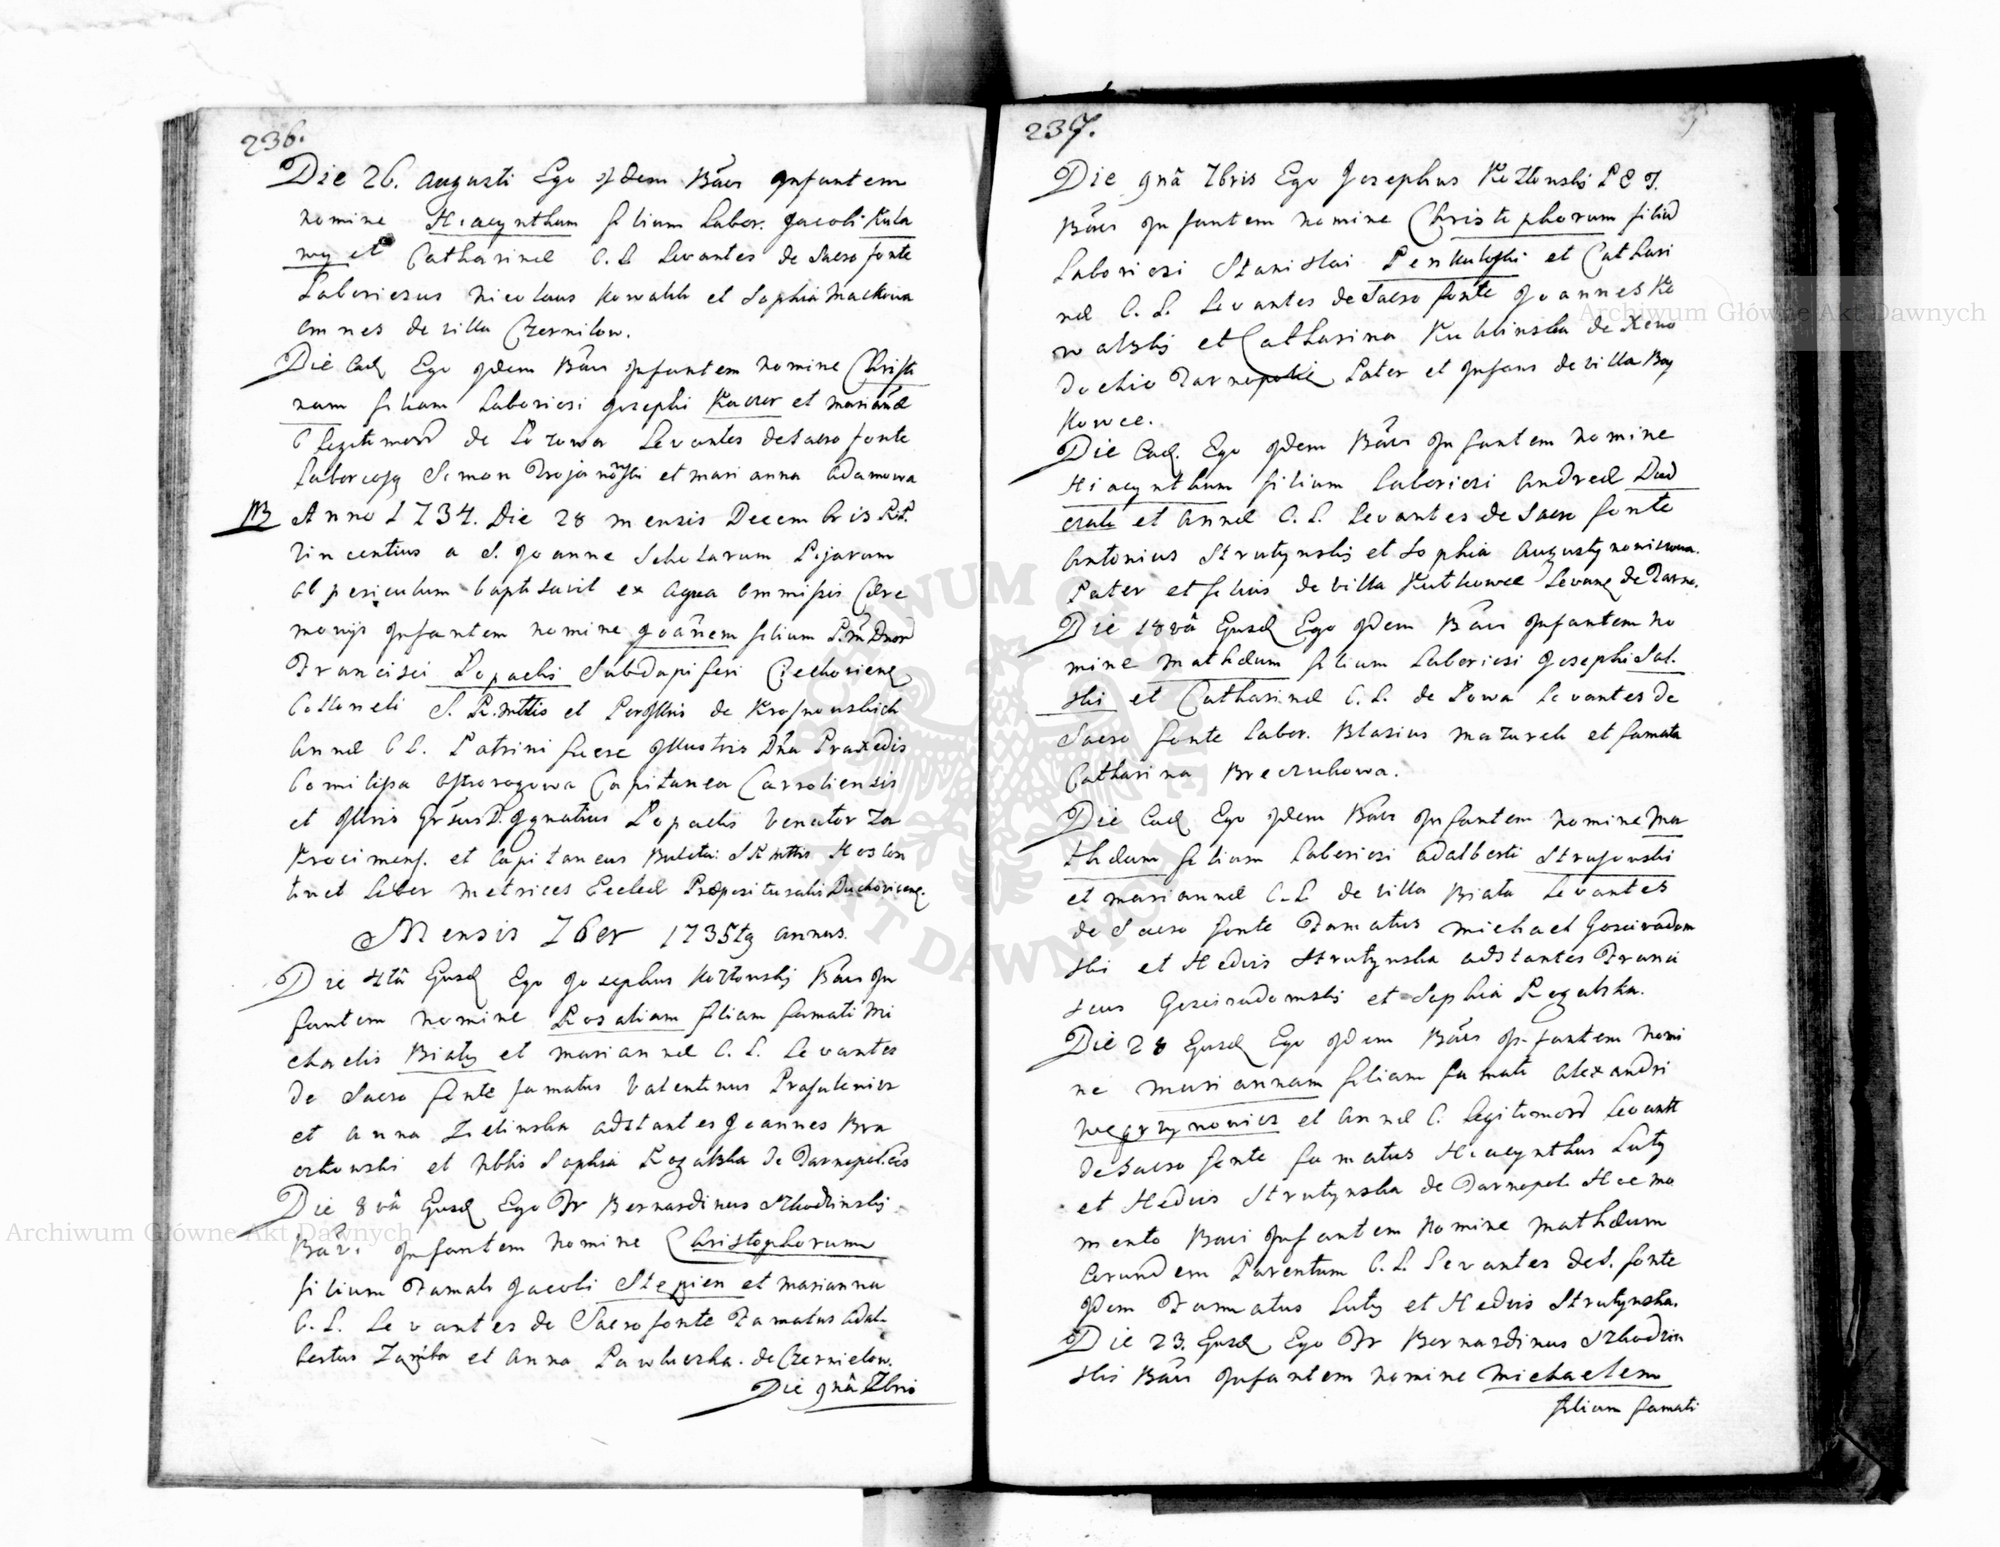 236.
Die 26. Augusti Ego Idem Bãvi Infantem
nomine Hiacynthum filium Labor. Jacobi Kula
wy et Catharinæ C. L. Levantes de Sacro fonte
Laboriosus Nicolaus Kowalik et Sophia Mackowa
omnes de villa Czernilow.
Die Ead Ego Idem Bãvi Infantem nomine Christi
nam filiam Laboriosi Josephi Kaczor et Mariãnæ
C Legitimorũ de Lozowa Levantes de Sacro fonte
Simon et Marianna Adamowa
NB Anno 1734. Die 28 mensis Decembris R.P.
Vincentius a S. Joanne Scholarum Piarum
ob periculum baptisavit ex aqua ommissis Cære
monijs Infantem nomine Joañem filium
Francisci Lopacki Subdapiferi
Colloneli S. R. Mttis et de Krosnowskich
Annæ C L. Patrini fuere Illustris Dña Praxedis
Comitissa Ostrorogowa Capitanea
et Ignatius Lopacki Venator Za
krocimens. et Capitaneus
Liber Metrices Eccleæ Præposituralis
Mensis 7ber 1735tg annus.
Die 4tâ Ejusd Ego Josephus Kozlonskj Bãvi In
fantem nomine Rosaliam filiam famati Mi
chaelis Biały et Mariannæ C. L. Levantes
de Sacro fonte famatus Valentinus
et Anna Zielinska adstantes Joannes Bra
czkowski et Nblis Sophia Rogalska de
Die 8vâ Ejusd Ego Fr Bernardinus
Bãvi Infantem nomine Christophorum
filium Famati Jacobi Stepien et Marianna
C. L. Levantes de Sacro fonte Famatus Adal-
bertus Zaręba et Anna Pawluczka. de Czernielow.
Die 9nâ 7bris
237.
Die 9nâ 7bris Ego Josephus Kozlonskj
Bãvi Infantem nomine Christophorum filiũ
Laboriosi Stanislai et Cathari
næ C. L. Levantes de Sacro fonte Joannes Ko
walskj et Catharina Kublinska de Xeno
dochio Pater et Infans de villa Bay
kowce.
Die Ead. Ego Idem Bãvi Infantem nomine
Hiacynthum filium Laboriosi Andreæ Dud
czak et Annæ C. L. Levantes de Sacro fonte
Antonius Strutynskj et Sophia
Pater et filius de villa Kutkowce Levanẽ de Tarno.
Die 18vâ Ejusd Ego Idem Bãvi Infantem no
mine Mathæum filium Laboriosi Josephi Sal.
ski et Catharinæ C. L. de Levantes de
Sacro fonte Labor. Blasius Mazurek et famata
Catharina Breczukowa.
Die Ead Ego Idem Bãvi Infantem nomine Ma
thæum filium Laboriosi Adalberti
et Mariannæ C. L. de villa Biała Levantes
de Sacro fonte Famatus Michael Gosciradom
ski et Hedvis Strutynska adstantes Franci
scus Gosciradomskj et Sophia Rogalska.
Die 28 Ejusd Ego Idem Bãvi Infantem nomi
ne Mariannam filiam famati Alexandri
Wegrzynowicz et Annæ C. Legitimorũ Levante
de Sacro fonte famatus Hiacynthus Luty
et Hedvis Strutynska de Tarnopol. Hoc mo
mento Bavi Infantem nomine Mathæum
eorundem Parentum C. L. Levantes de S. fonte
Idem Famatus Luty et Hedvis Strutynska.
Die 23. Ejusd Ego Fr Bernardinus
Bãvi Infantem nomine Michaelem
filium famati
Archiwum Główne Akt Dawnych
Archiwum Główne Akt Dawnych
ARCHIWUM GŁÓWNE AKT DAWNYCH